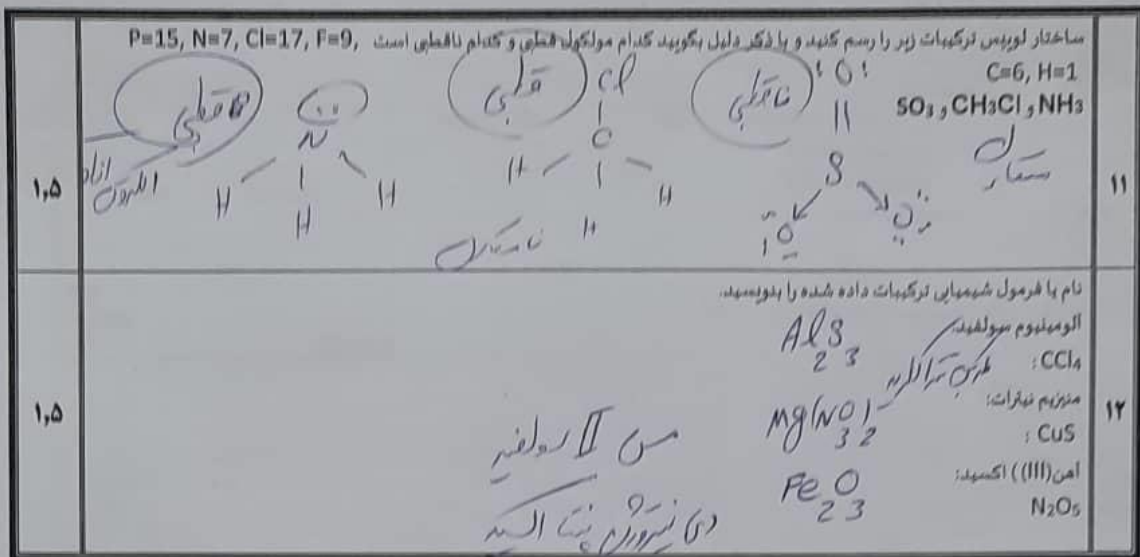 ساختار لوییس ترکیبات زیر را رسم کنید و با ذکر دلیل بگویید کدام مولکول قطبی و کدام ناقطبی است P=15, N=7, Cl=17, F=9,
C=6, H=1
SO₃ و CH₃Cl و NH₃
۱۱
۱,۵
ناقطبی
O
S
O O
قطبی
Cl
C
H H
H
قطبی
N
H H
H
الکترون
نام یا فرمول شیمیایی ترکیبات داده شده را بنویسید.
۱۲
۱,۵
آلومینیوم سولفید: Al₂S₃
CCl₄ :
منیزیم نیترات: Mg(NO₃)₂
CuS : مس II سولفید
آهن(III)) اکسید: Fe₂O₃
N₂O₅ دی نیتروژن پنتا اکسید